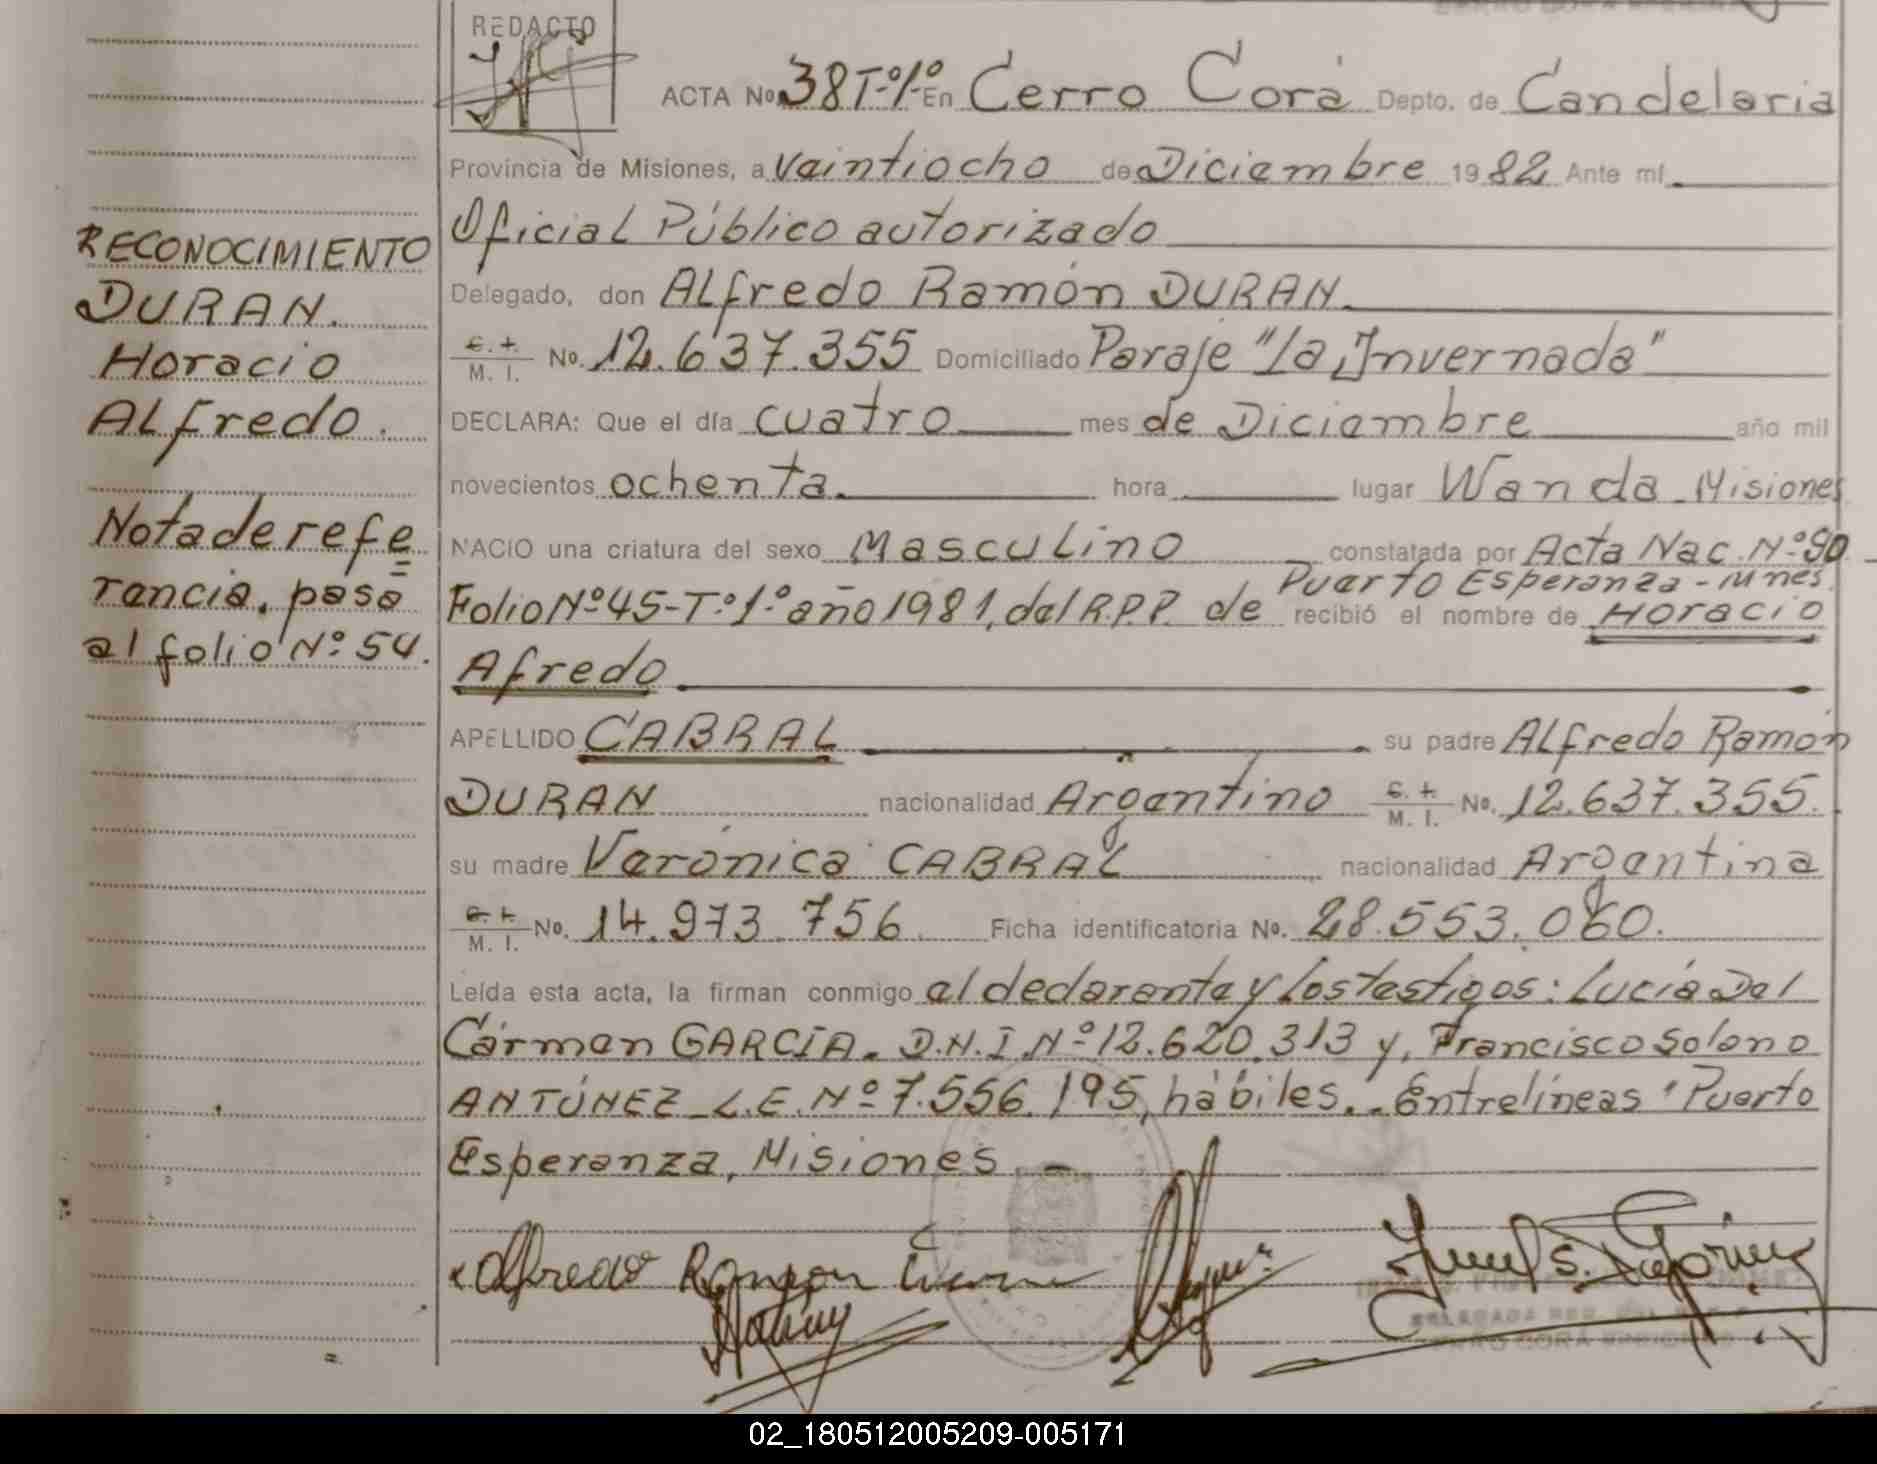 REDACTO
ACTA No. 38 Tº1º En Cerro Corá Depto. de Candelaria
Provincia de Misiones, a Veintiocho de Diciembre 1982 Ante mí
Oficial Público autorizado
Delegado, don ALfredo Ramón DURAN
C. I. M. I. No. 12.637.355 Domiciliado Paraje "La Invernada"
DECLARA: Que el día cuatro mes de Diciembre año mil
novecientos ochenta hora lugar Wanda - Misiones
NACIO una criatura del sexo Masculino constatada por Acta Nac. Nº 90
Puerto Esperanza - Mnes.
Folio Nº 45 - Tº 1º año 1981, del R.P.P. de recibió el nombre de Horacio
Afredo
APELLIDO CABRAL su padre ALfredo Ramón
DURAN nacionalidad Argentino C. I. M. I. No. 12.637.355.
su madre Verónica CABRAL nacionalidad Argentina
C. I. M. I. No. 14.973.756 Ficha identificatoria No. 28.553.060.
Leída esta acta, la firman conmigo el declarante y los testigos: Lucía Del
Cármen GARCÍA. D.N.I. Nº 12.620.313 y, Francisco Solano
ANTÚNEZ - L.E. Nº 7.556.195, hábiles. - Entrelíneas "Puerto
Esperanza, Misiones
RECONOCIMIENTO
DURAN.
Horacio
ALfredo.
Nota de refe
rencia, pasa
al folio Nº 54.
Alfredo Ramon
02_180512005209-005171